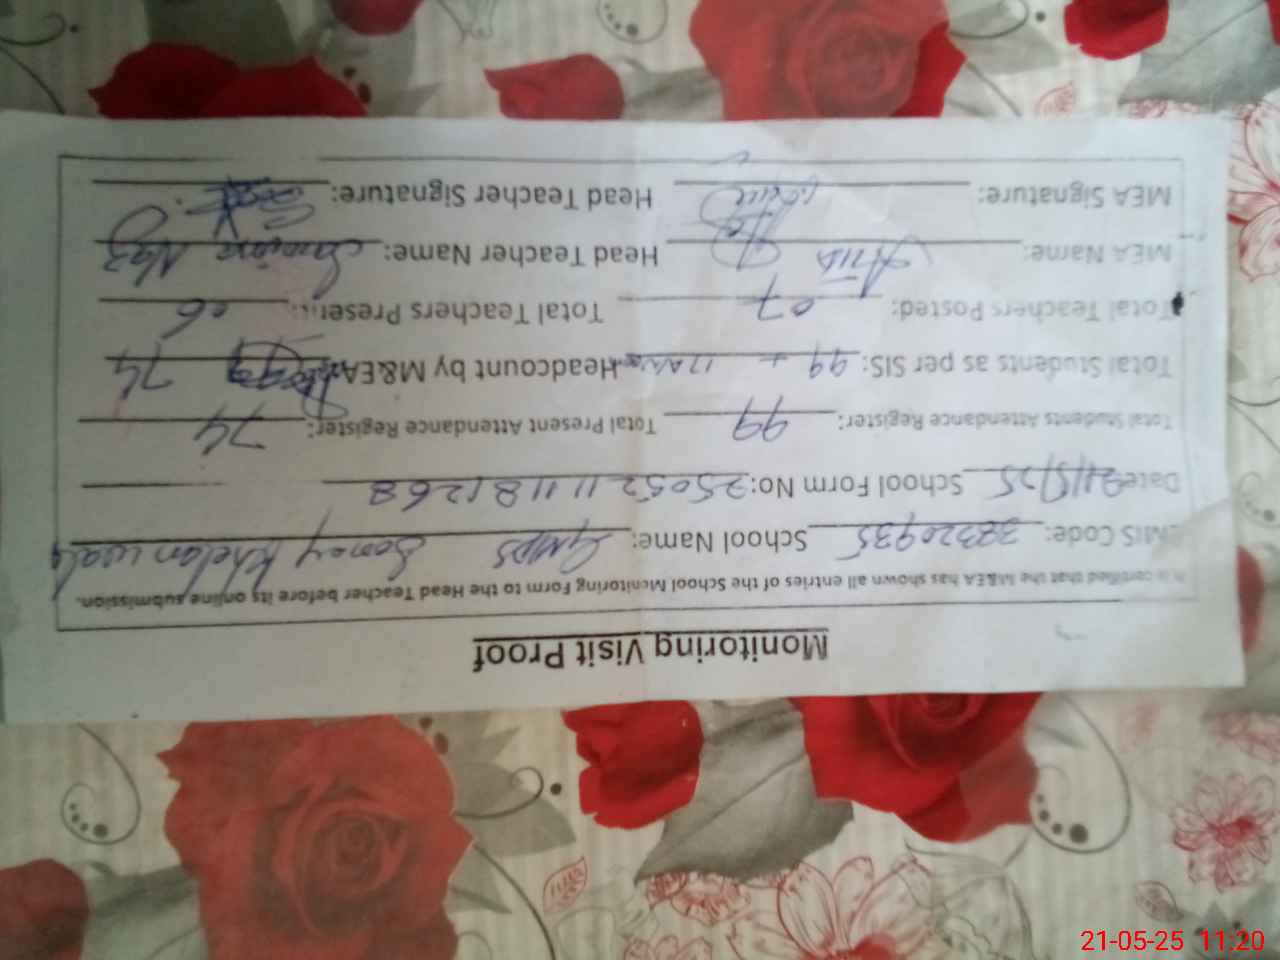 Monitoring Visit Proof
It is certified that the M&EA has shown all entries of the School Monitoring Form to the Head Teacher before its online submission.
EMIS Code: 38320935 School Name: GMPS Khelan wala
Date: 21/5/25 School Form No: 25052111181268
Total Students Attendance Register: 99 Total Present Attendance Register: 74
Total Students as per SIS: 99 + Headcount by M&EA: 74
Total Teachers Posted: 07 Total Teachers Present: 06
MEA Name: Head Teacher Name: Naz
MEA Signature: Head Teacher Signature:
21-05-25 11:20